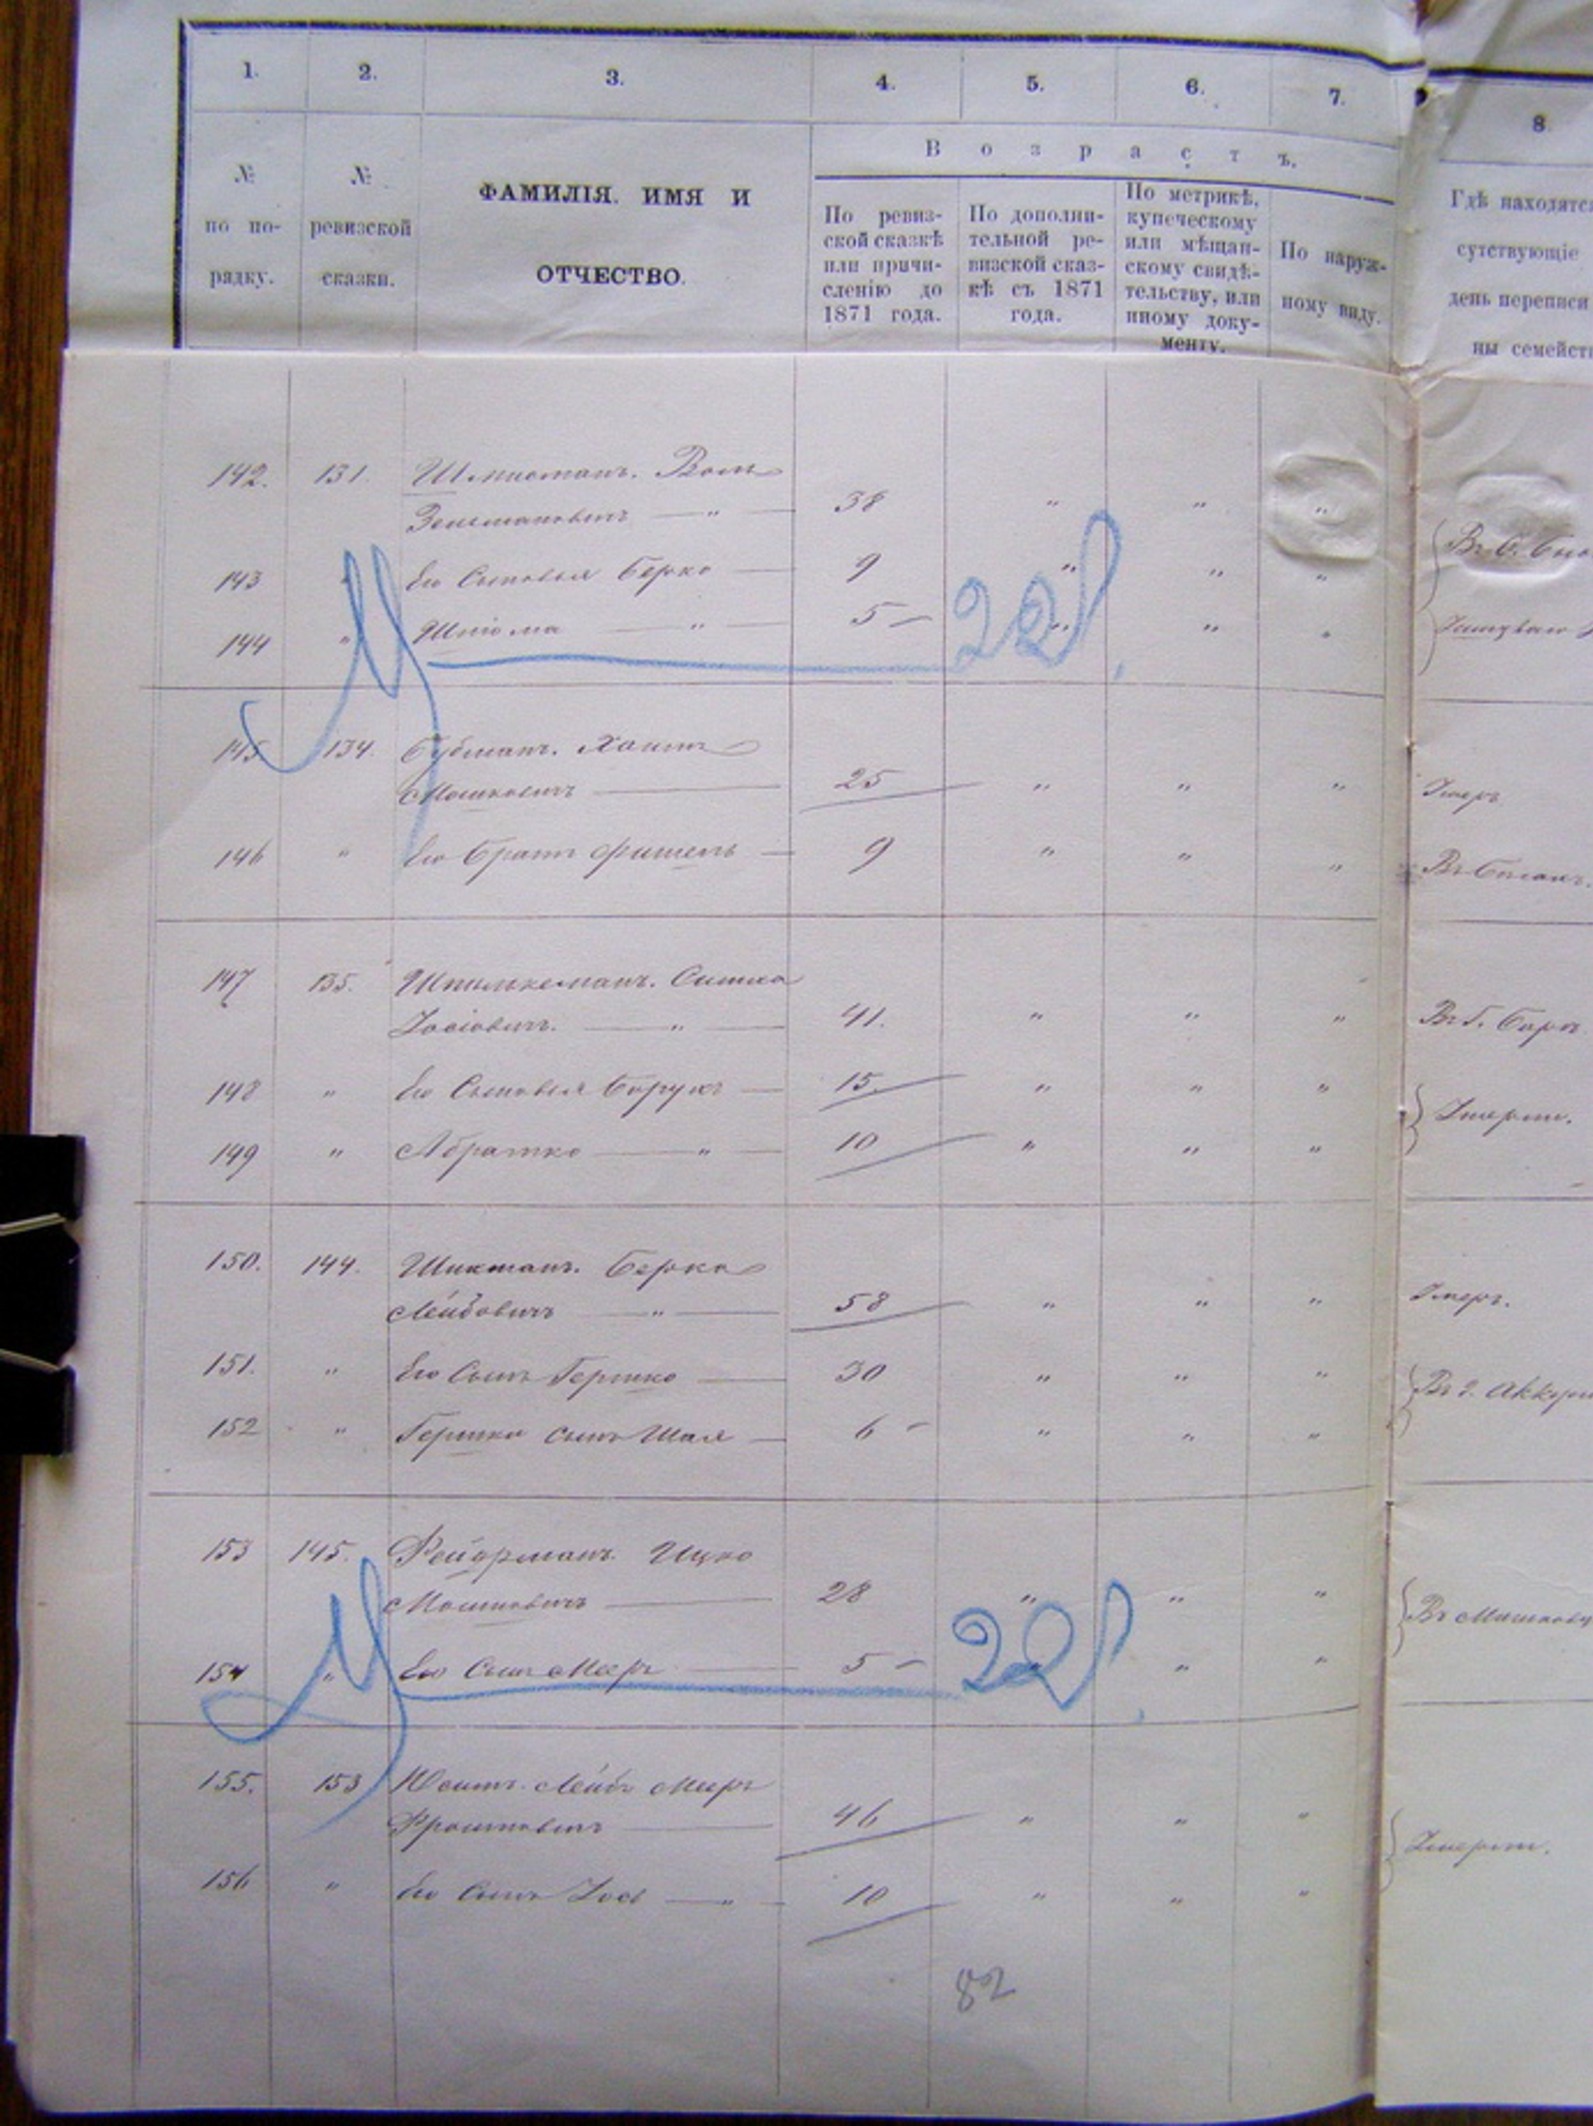 1. 2. 3. 4. 5. 6. 7. 8
Возрастъ.
№ по порядку.
№ ревизской сказки.
ФАМИЛІЯ. ИМЯ И
ОТЧЕСТВО.
По ревиз-
ской сказкѣ
или причи-
сленію до
1871 года.
По дополни-
тельной ре-
визской сказ-
кѣ съ 1871
года.
По метрикѣ,
купеческому
или мѣщан-
скому свидѣ-
тельству, или
иному доку-
менту.
По наруж-
ному виду.
Гдѣ находятся
сутствующіе
день переписи
ны семейств
142. 131.
Зельмановичъ — " — 38 " " "
143 " Его Сыновья Берко — 9 " " "
144 " Шлiома — " — 5 — " " "
22
145 134. Губманъ. Хаимъ
Мошковичъ — 25 " " " Умеръ
146 " Его братъ Фишель — 9 " " "
147 135. Шпилькеманъ. Симха
Іосіовичъ. — " — 41. " " "
148 " Его Сыновья Борухъ — 15. " " "
149 " Абрамко — " — 10 " " " Умерли.
150. 144. Шикманъ. Берко
Лейбовичъ — " — 58 " " " Умеръ.
151. " Его Сынъ Гершко — 30 " " "
152 " Гершка сынъ Шая — 6 — " " "
153 145. Ицко
Мошковичъ — 28 " " "
154 " Его Сынъ Мееръ — 5 — " " "
22
155. 153 Лейбъ Мееръ
Фроимовичъ — 46 " " "
156 " Его Сынъ Іось — " — 10 " " " Умерли.
82